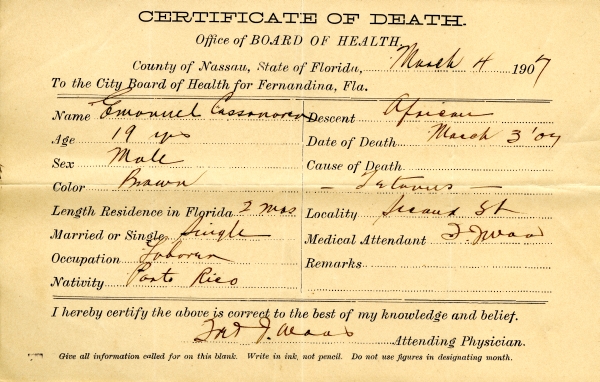 CERTIFICATE OF DEATH.
Office of BOARD OF HEALTH,
County of Nassau, State of Florida, March 4 1907
To the City Board of Health for Fernandina, Fla.
Name Emanuel
Descent African
Age 19 yrs
Date of Death March 3 '07
Sex Male
Cause of Death
Color Brown
– Tetanus –
Length Residence in Florida 2 mos
Locality St
Married or Single Single
Medical Attendant
Occupation Laborer
Remarks
Nativity Porto Rico
I hereby certify the above is correct to the best of my knowledge and belief.
Attending Physician.
Give all information called for on this blank. Write in ink, not pencil. Do not use figures in designating month.